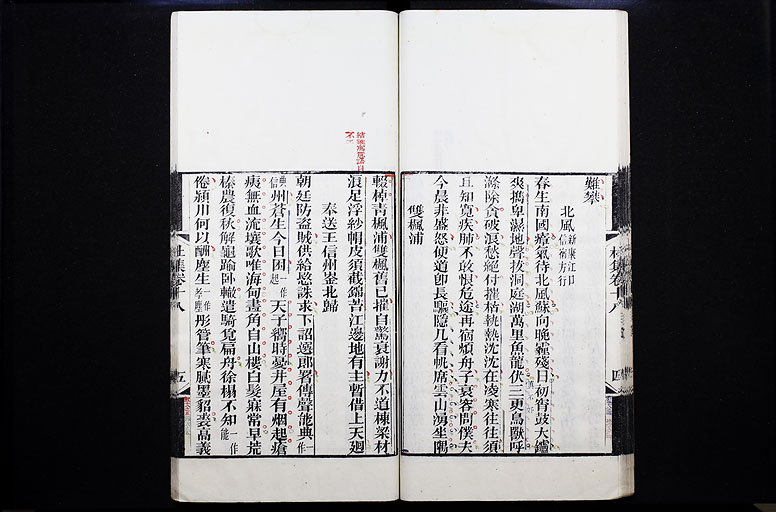 難攀
北風 新康江口信宿方行
春生南國瘴氣待北風蘇向晚霾殘日初宵鼓大鑪
爽攜卑濕地聲拔洞庭湖萬里魚龍伏三更鳥獸呼
滌除貪破浪愁絕付摧枯執熱沈沈在凌寒往往須
且知寬疾肺不敢恨危途再宿煩舟子衰容問僕夫
今晨非盛怒便道卽長驅隱几看帆席雲山湧坐隅
雙楓浦
輟棹青楓浦雙楓舊已摧自驚衰謝力不道棟梁材
浪足浮紗帽皮須截錦苔江邊地有主暫借上天廻
奉送王信州崟北歸
朝廷防盜賊供給愍誅求下詔選郎署傳聲能典一作
典信州蒼生今日困一作起天子嚮時憂井屋有烟起瘡
痍無血流壤歌唯海甸畫角自山樓白髮寐常早荒
榛農復秋解龜踰臥轍遣騎覓扁舟徐榻不知一作能
倦潁川何以酬塵生彤管筆寒膩黑貂裘高義
杜集卷十八
五
杜集卷十八
四